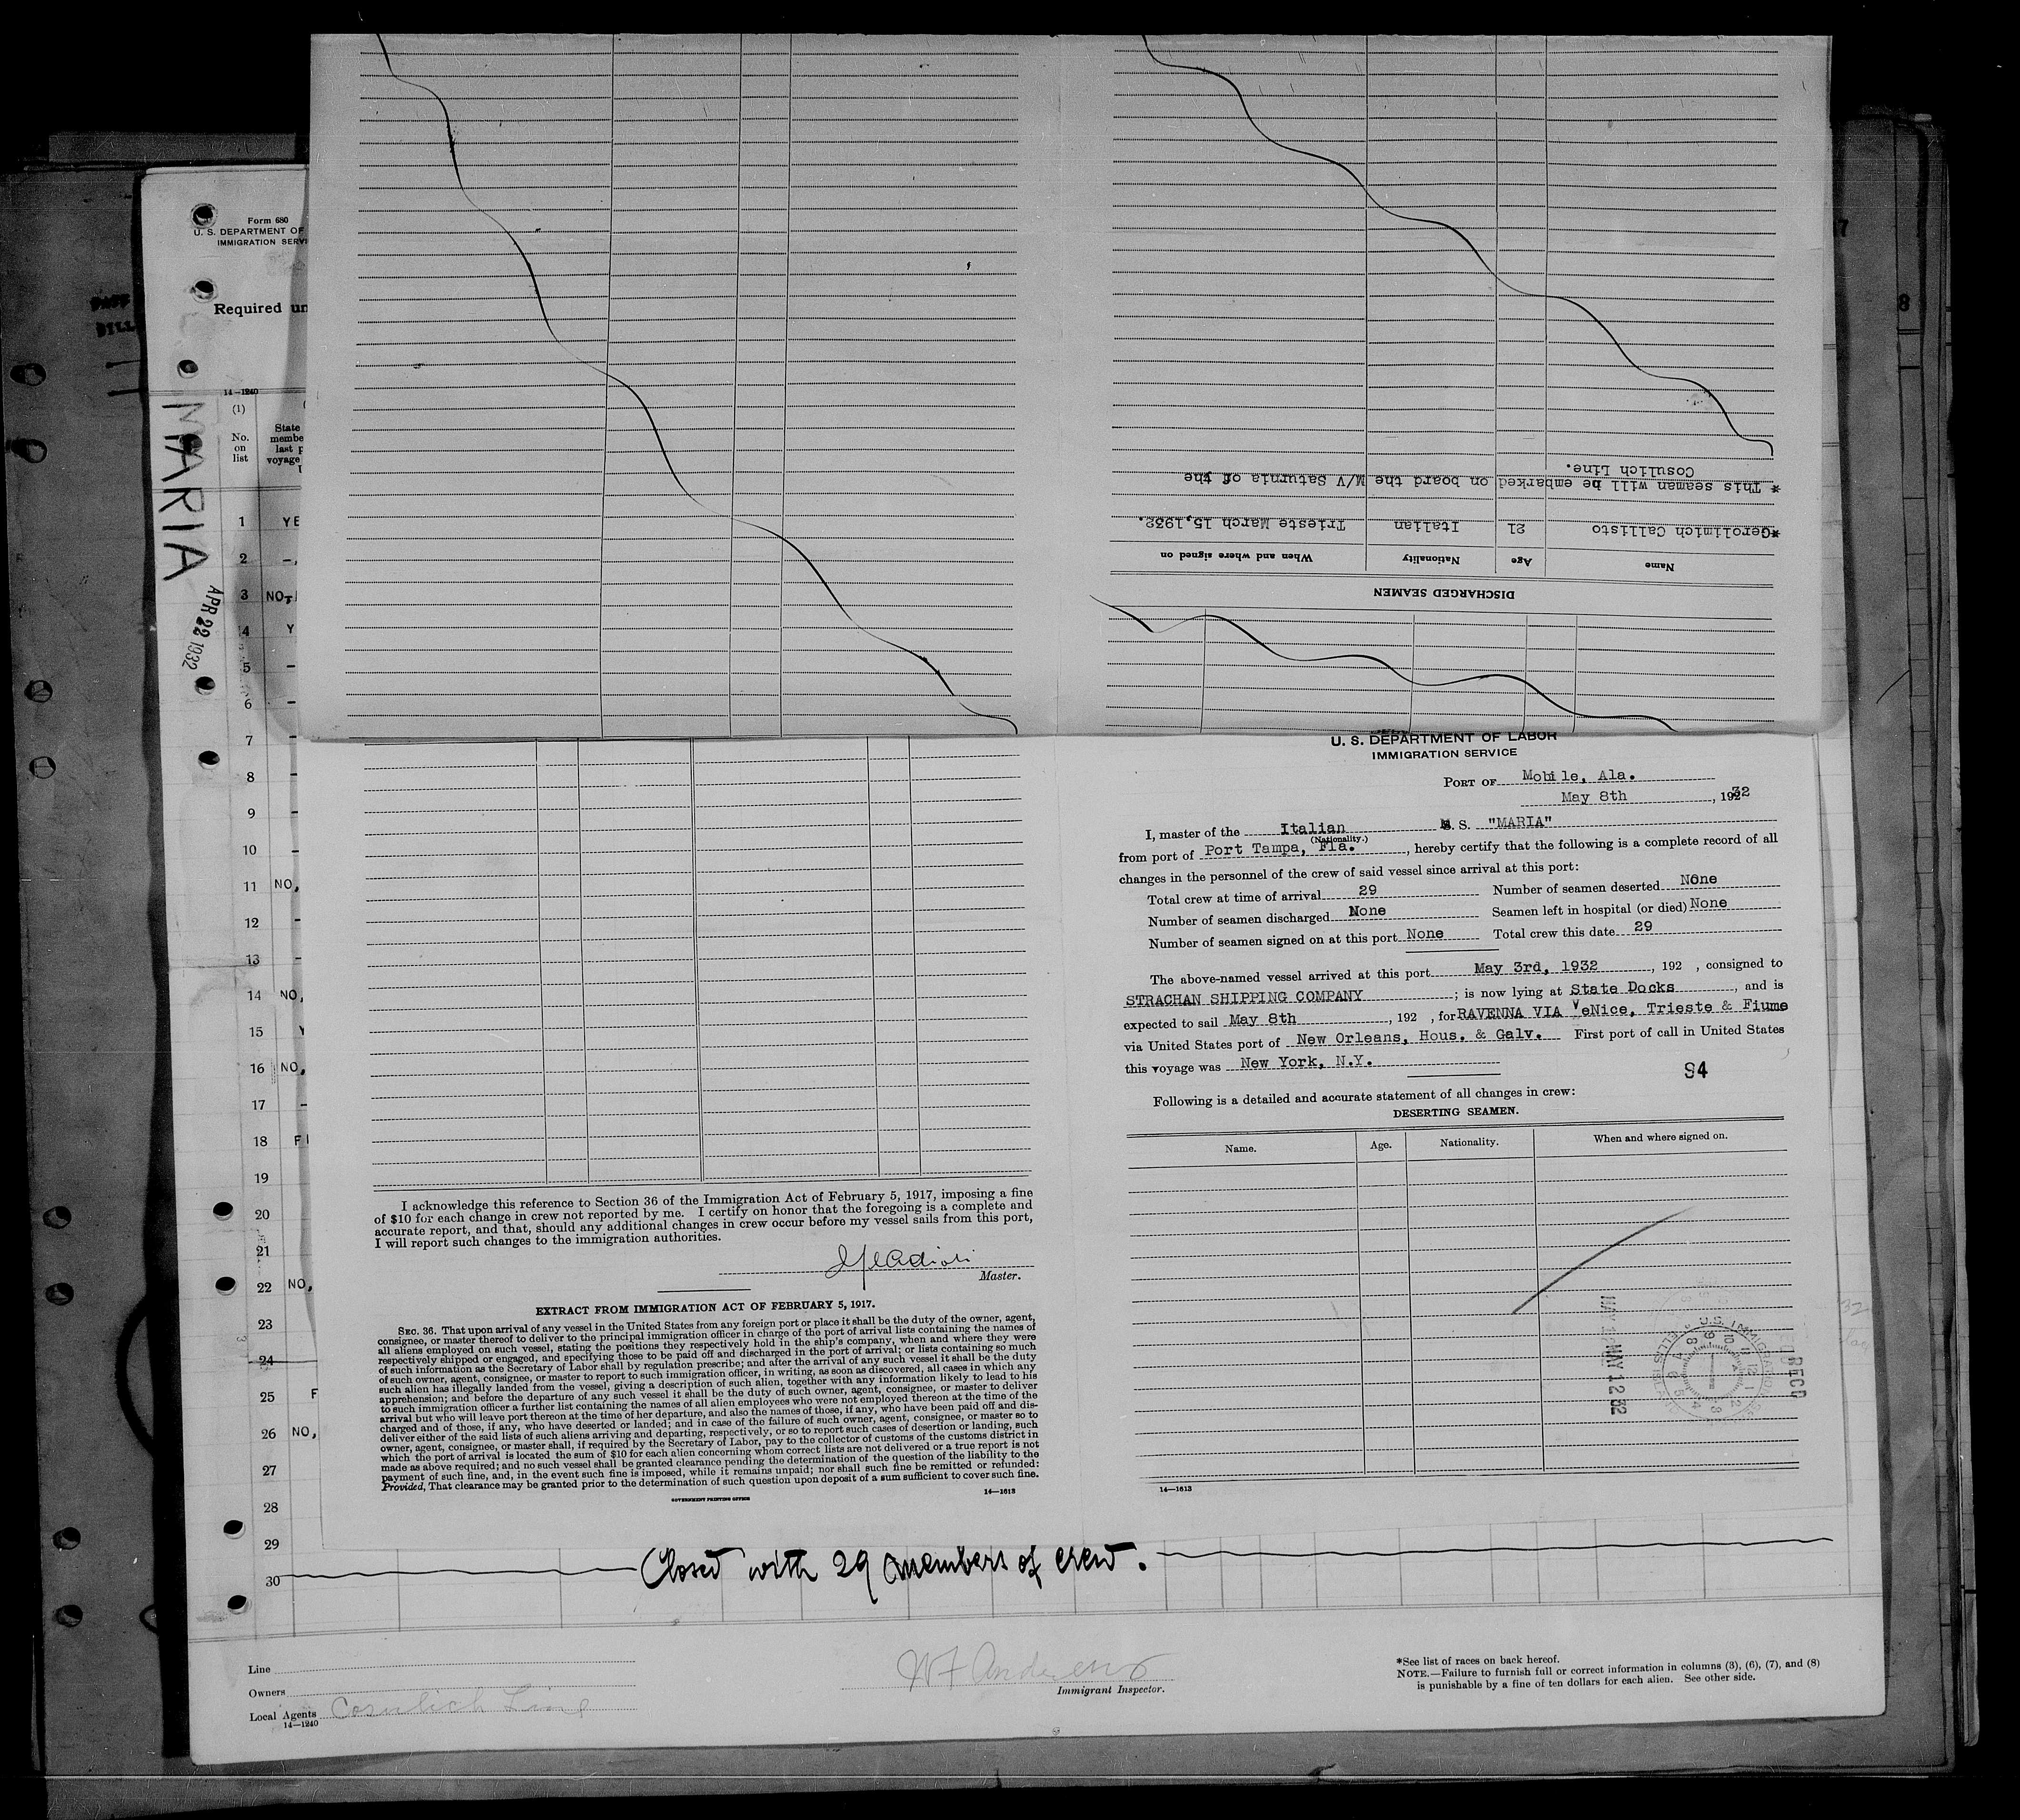 Form 680
U. S. DEPARTMENT OF
IMMIGRATION SERVI
Required un
14—1240
MARIA
APR 22 1932
(1)
No.
on
list
State
membe
last p
voyage
1 YE
2 -,
3 NO,
4 Y
5 -
6 -
7 -
8 -
9 -
10 -
11 NO,
12 -
13 -
14 NO,
15 Y
16 NO,
17 -
18 F
19
20
21
22 NO,
23
24
25 F
26 NO,
27
28
29
30
DISCHARGED SEAMEN
Name Age Nationality When and where signed on
*Gerolimich Callisto 21 Italian Trieste March 15,1932.
* This seaman will be embarked on board the M/V Saturnia of the
Cosulich Line.
I acknowledge this reference to Section 36 of the Immigration Act of February 5, 1917, imposing a fine
of $10 for each change in crew not reported by me. I certify on honor that the foregoing is a complete and
accurate report, and that, should any additional changes in crew occur before my vessel sails from this port,
I will report such changes to the immigration authorities.
Master.
EXTRACT FROM IMMIGRATION ACT OF FEBRUARY 5, 1917.
SEC. 36. That upon arrival of any vessel in the United States from any foreign port or place it shall be the duty of the owner, agent,
consignee, or master thereof to deliver to the principal immigration officer in charge of the port of arrival lists containing the names of
all aliens employed on such vessel, stating the positions they respectively hold in the ship's company, when and where they were
respectively shipped or engaged, and specifying those to be paid off and discharged in the port of arrival; or lists containing so much
of such information as the Secretary of Labor shall by regulation prescribe; and after the arrival of any such vessel it shall be the duty
of such owner, agent, consignee, or master to report to such immigration officer, in writing, as soon as discovered, all cases in which any
such alien has illegally landed from the vessel, giving a description of such alien, together with any information likely to lead to his
apprehension; and before the departure of any such vessel it shall be the duty of such owner, agent, consignee, or master to deliver
to such immigration officer a further list containing the names of all alien employees who were not employed thereon at the time of the
arrival but who will leave port thereon at the time of her departure, and also the names of those, if any, who have been paid off and dis-
charged and of those, if any, who have deserted or landed; and in case of the failure of such owner, agent, consignee, or master so to
deliver either of the said lists of such aliens arriving and departing, respectively, or so to report such cases of desertion or landing, such
owner, agent, consignee, or master shall, if required by the Secretary of Labor, pay to the collector of customs of the customs district in
which the port of arrival is located the sum of $10 for each alien concerning whom correct lists are not delivered or a true report is not
made as above required; and no such vessel shall be granted clearance pending the determination of the question of the liability to the
payment of such fine, and, in the event such fine is imposed, while it remains unpaid; nor shall such fine be remitted or refunded:
Provided, That clearance may be granted prior to the determination of such question upon deposit of a sum sufficient to cover such fine.
GOVERNMENT PRINTING OFFICE 14—1613
U. S. DEPARTMENT OF LABOR
IMMIGRATION SERVICE
PORT OF Mobile, Ala.
May 8th, 1932
I, master of the Italian S. "MARIA"
(Nationality.)
from port of Port Tampa, Fla., hereby certify that the following is a complete record of all
changes in the personnel of the crew of said vessel since arrival at this port:
Total crew at time of arrival 29 Number of seamen deserted None
Number of seamen discharged None Seamen left in hospital (or died) None
Number of seamen signed on at this port None Total crew this date 29
The above-named vessel arrived at this port May 3rd, 1932, 192 , consigned to
STRACHAN SHIPPING COMPANY ; is now lying at State Docks, and is
expected to sail May 8th, 192 , for RAVENNA VIA VeNice, Trieste & Fiume
via United States port of New Orleans, Hous. & Galv. First port of call in United States
this voyage was New York, N.Y.
94
Following is a detailed and accurate statement of all changes in crew:
DESERTING SEAMEN.
Name. Age. Nationality. When and where signed on.
MAY 12 32
U.S. IMMIGRATION
ELLIS IS
RECD
14—1613
Closed with 29 members of crew.
Line
Owners
Local Agents Cosulich Line
14—1240
W F Andrews
Immigrant Inspector.
*See list of races on back hereof.
NOTE.—Failure to furnish full or correct information in columns (3), (6), (7), and (8)
is punishable by a fine of ten dollars for each alien. See other side.